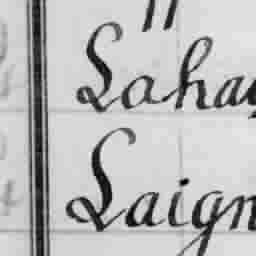 Lahay
Laign